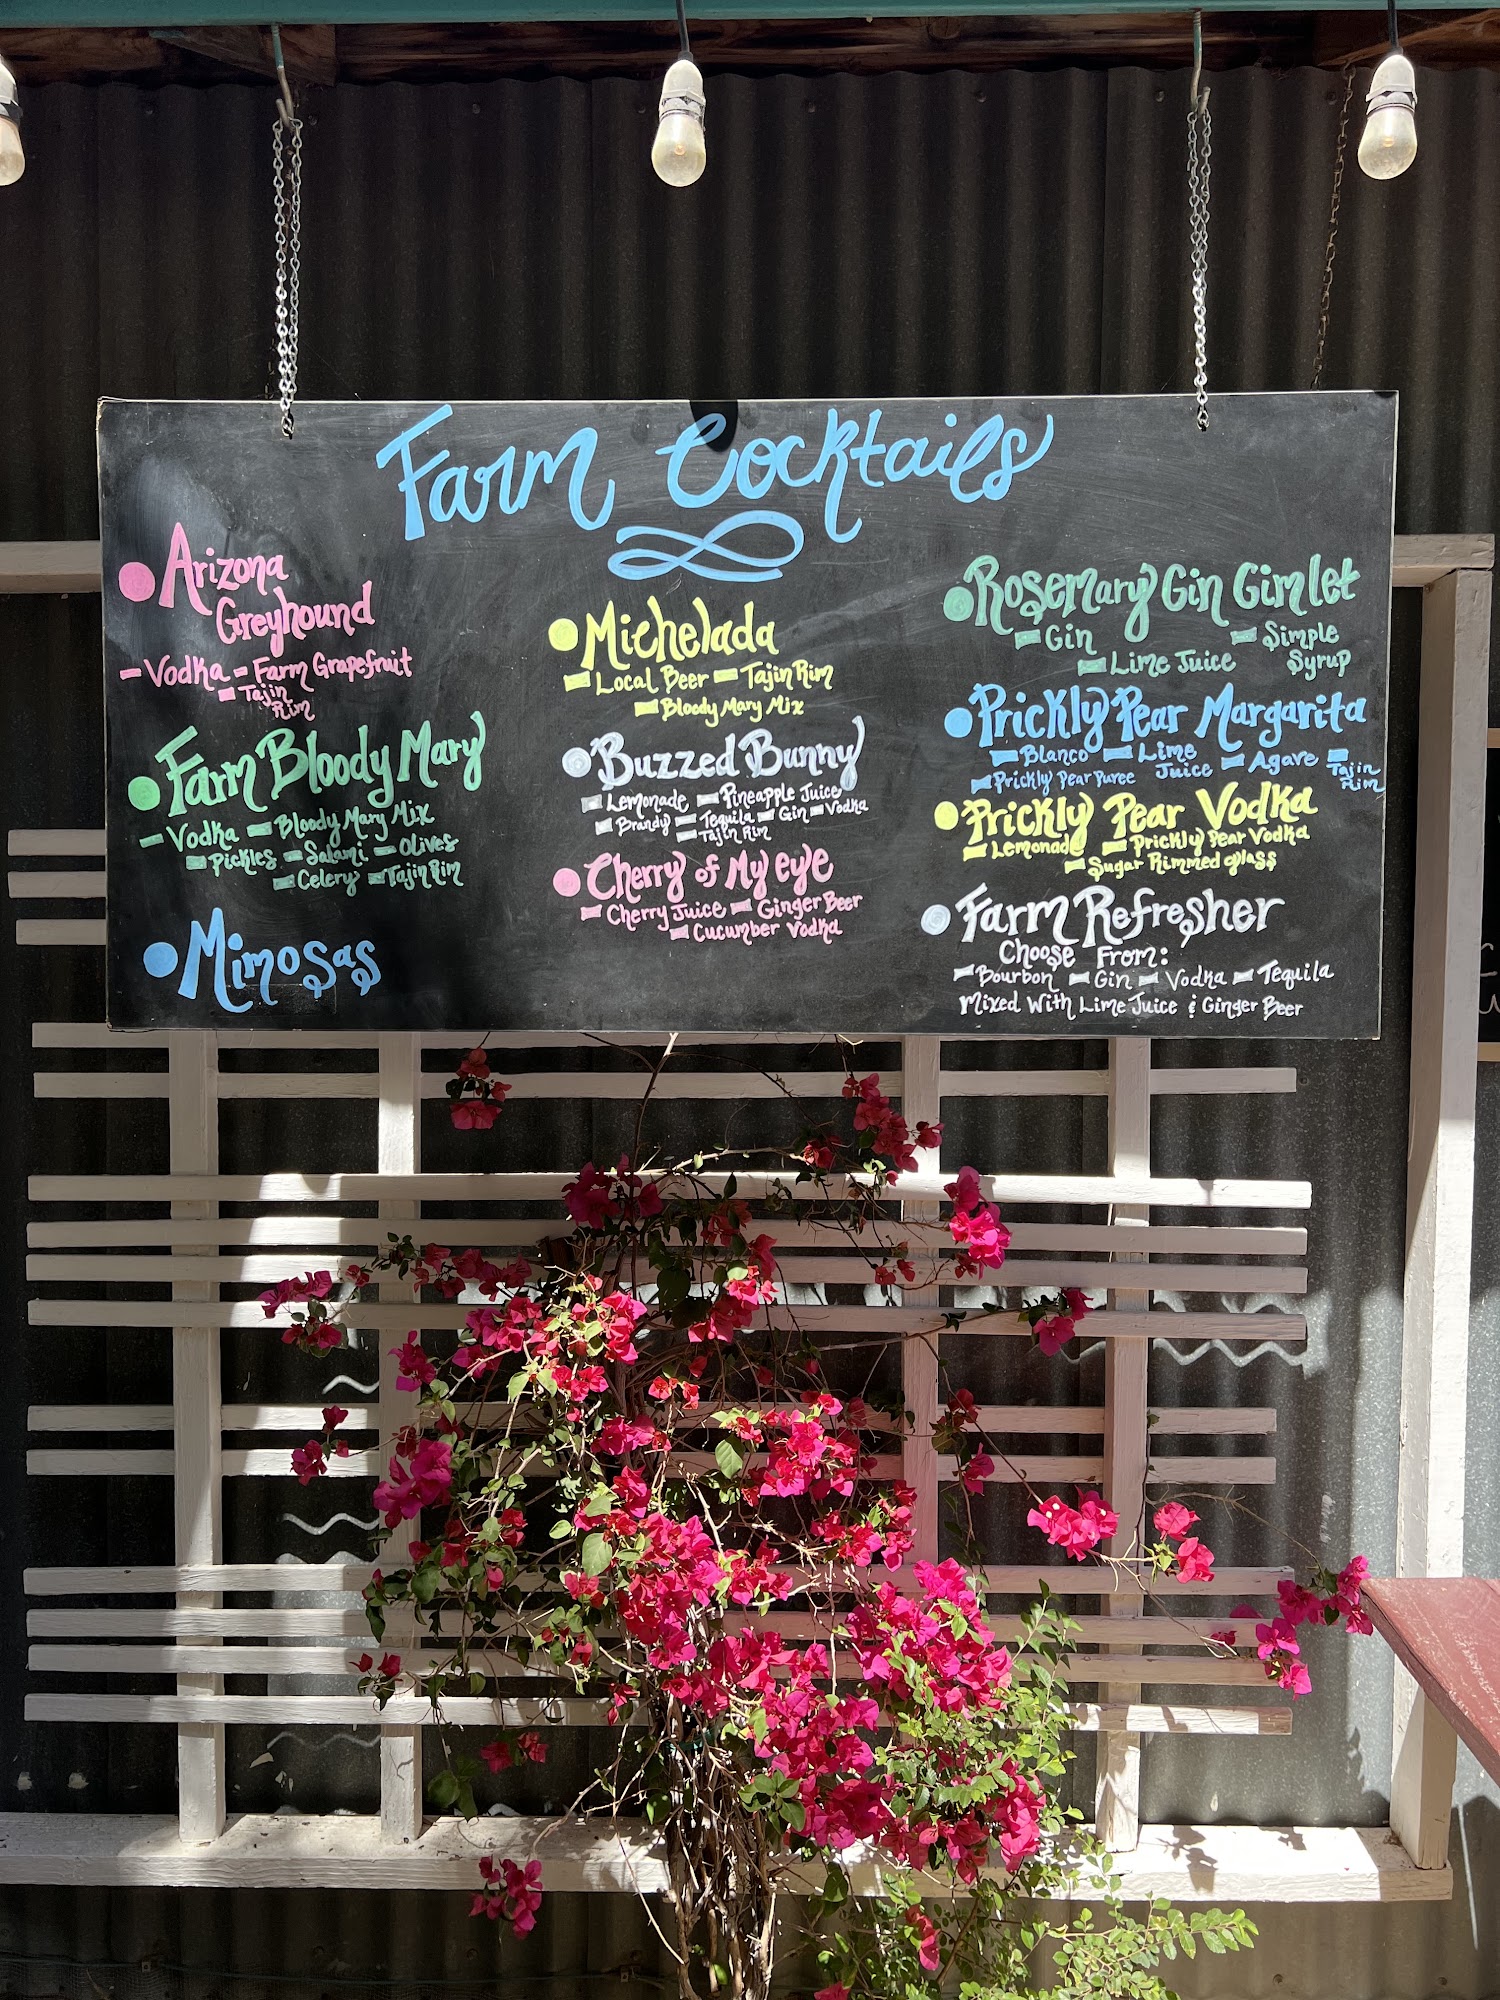 Farm Cocktails
Arizona
Greyhound
- Vodka - Farm Grapefruit
- Tajin
Rim
Farm Bloody Mary
- Vodka - Bloody Mary Mix
- Pickles - Salami - Olives
- Celery - Tajin Rim
Mimosas
Michelada
- Local Beer - Tajin Rim
- Bloody Mary Mix
Buzzed Bunny
- Lemonade - Pineapple Juice
- Brandy - Tequila - Gin - Vodka
- Tajin Rim
Cherry of My eye
- Cherry Juice - Ginger Beer
- Cucumber Vodka
Rosemary Gin Gimlet
- Gin - Simple
Syrup
- Lime Juice
Prickly Pear Margarita
- Blanco - Lime
Juice - Agave - Tajin
Rim
- Prickly Pear Puree
Prickly Pear Vodka
- Lemonade - Prickly Pear Vodka
- Sugar Rimmed glass
Farm Refresher
Choose From:
- Bourbon - Gin - Vodka - Tequila
Mixed With Lime Juice & Ginger Beer